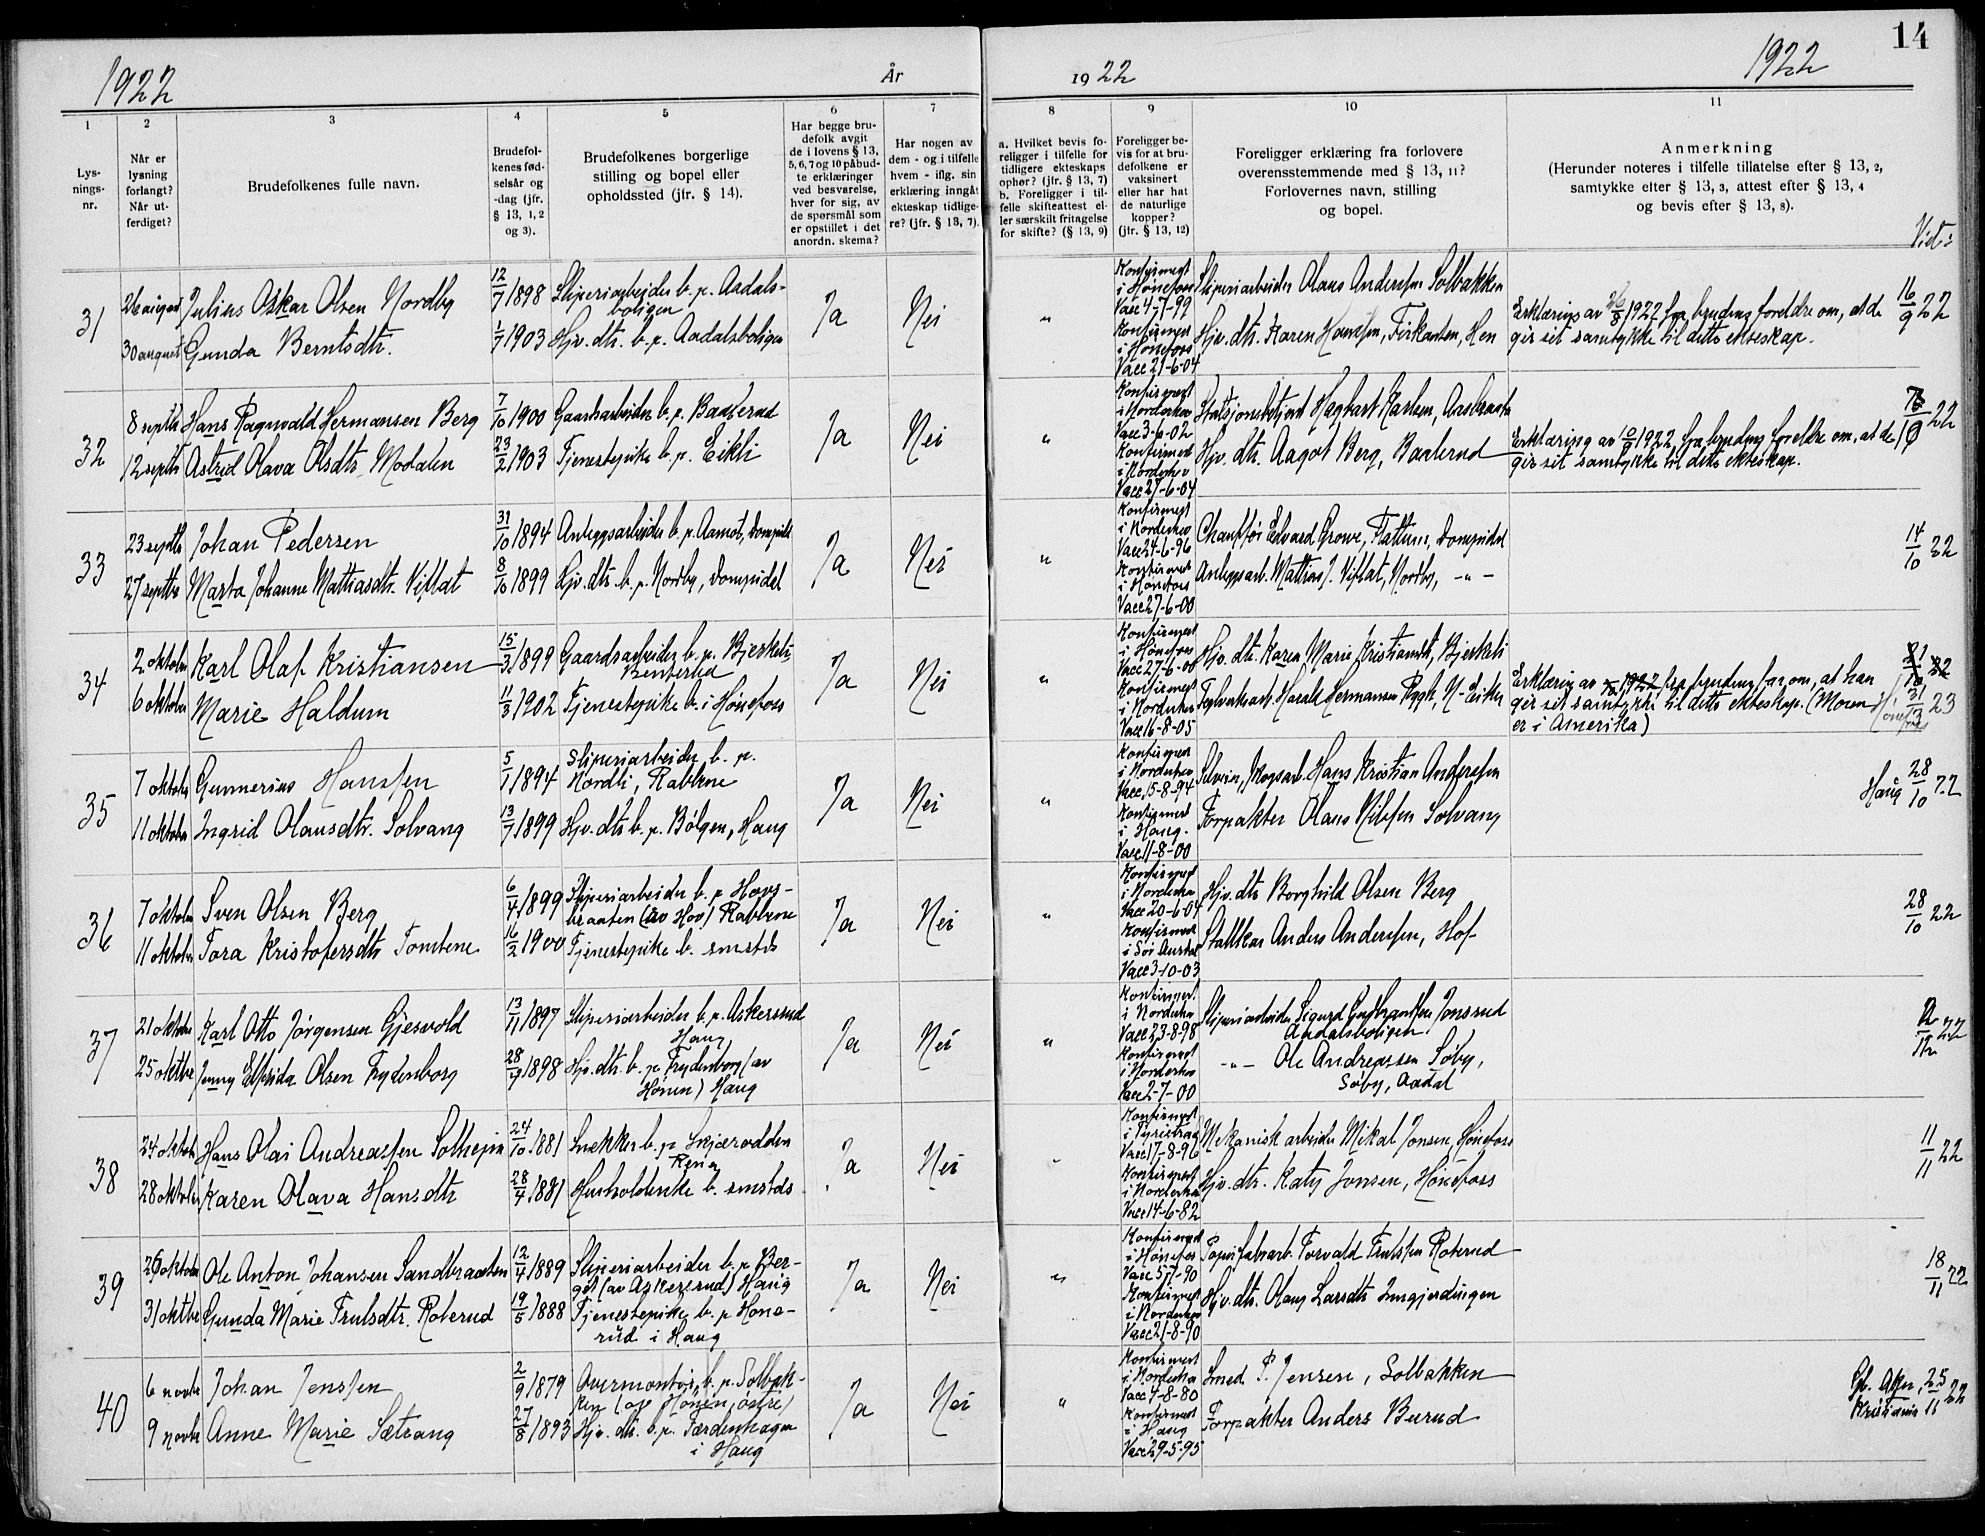 14
1922
År
19 22
1922
1
2
3
4
5
6
7
8
9
10
11
Lys-
nings-
nr.
Når er
lysning
forlangt?
Når ut-
ferdiget?
Brudefolkenes fulle navn.
Brudefol-
kenes fød-
selsår og
-dag (jfr.
§ 13, 1, 2
og 3).
Brudefolkenes borgerlige
stilling og bopel eller
opholdssted (jfr. § 14).
Har begge bru-
defolk avgit
de i lovens § 13,
5, 6, 7 og 10 påbud-
te erklæringer
ved besvarelse,
hver for sig, av
de spørsmål som
er opstillet i det
anordn. skema?
Har nogen av
dem - og i tilfelle
hvem - iflg. sin
erklæring inngåt
ekteskap tidlige-
re? (jfr. § 13, 7).
a. Hvilket bevis fo-
religger i tilfelle for
tidligere ekteskaps
ophør? (jfr. § 13, 7)
b. Foreligger i til-
felle skifteattest el-
ler særskilt fritagelse
for skifte? (§ 13, 9)
Foreligger be-
vis for at bru-
defolkene er
vaksinert
eller har hat
de naturlige
kopper?
(jfr. § 13, 12)
Foreligger erklæring fra forlovere
overensstemmende med § 13, 11?
Forlovernes navn, stilling
og bopel.
Anmerkning
(Herunder noteres i tilfelle tillatelse efter § 13, 2,
samtykke efter § 13, 3, attest efter § 13, 4
og bevis efter § 13, 8).
Viet:
31
26 august
30 august
Julius Oskar Olsen Nordby
Gunda Berntsdtr.
12/7 1898
1/7 1903
Sliperiarbeider b. p. Aadals-
boligen
Hjv. dtr. b. p. Aadalsboligen
Ja
Nei
"
Konfirmert
i Hønefoss
Vacc 4-7-99
Konfirmert
i Hønefoss
Vacc 21-6-04
Sliperiarbeider Olaus Andersen Solbakken
Hjv. dtr. Karen Hansen, Firkanten, Hen
Erklæring av 26/8 1922 fra brudens foreldre om, at de
gir sit samtykke til dette ekteskap.
16/9 22
32
8 septbr
12 septbr
Hans Ragnvald Hermansen Berg
Astrid Olava Olsdtr. Modalen
7/10 1900
23/2 1903
Gaardsarbeider b. p. Baalerud
Tjenestepike b. p. Eikli
Ja
Nei
"
Konfirmert
i Norderhov
Vacc 3-6-02
Konfirmert
i Norderhov
Vacc 27-6-04
Stasjonsbetjent Hagbart Karlsen,
Hjv. dtr. Aagot Berg, Baalerud
Erklæring av 10/9 1922 fra brudens foreldre om, at de
gir sit samtykke til dette ekteskap.
22
33
23 septbr
27 septbr
Johan Pedersen
Marta Johanne Mattiasdtr. Viflat
31/10 1894
8/10 1899
Anleggsarbeider b. p. Aamot,
Hjv. dtr. b. p. Nordby,
Ja
Nei
"
Konfirmert
i Norderhov
Vacc 24-6-96
Konfirmert
i Hønefoss
Vacc 27-6-00
Chauffør Edvard Growe, Flattum,
Anleggsarb. Mattias J. Viflat, Nordby, - " -
14/10 22
34
2 oktober
6 oktober
Karl Olaf Kristiansen
Marie Haldum
15/3 1899
11/3 1902
Gaardsarbeider b. p. Bjerkeli,
Tjenestepike b. i Hønefoss
Ja
Nei
"
Konfirmert
i Hønefoss
Vacc 27-6-00
Konfirmert
i Norderhov
Vacc 16-8-05
Hjv. dtr. Karen Marie Kristiansdtr, Bjerkeli
Teglverksarb. Harald Hermansen Rygh, N-Eiker
Erklæring av 1922 fra brudens far om, at han
gir sit samtykke til dette ekteskap. (Moren
er i Amerika)
Hønefoss
31/3 23
35
7 oktober
11 oktober
Gunnerius Hanssen
Ingrid Olausdtr. Solvang
5/1 1894
13/7 1899
Sliperiarbeider b. p.
Nordli, Rabbene
Hjv. dtr b. p. Bølgen, Haug
Ja
Nei
"
Konfirmert
i Norderhov
Vacc 15-8-94
Konfirmert
i Haug.
Vacc 11-8-00
Selveier, skogsarb. Hans Kristian Andersen
Forpakter Olaus Nilssen Solvang
Haug 28/10 22
36
7 oktober
11 oktober
Sven Olsen Berg
Tora Kristofersdtr Tomtene
6/4 1899
16/2 1900
Sliperiarbeider b. p Hovs-
braaten (av Hov) Rabbene
Tjenestepike b. smstds
Ja
Nei
"
Konfirmert
i Norderhov
Vacc 20-6-04
Konfirmert
i Sør Aurdal
Vacc 3-10-03
Hjv. dtr Borghild Olsen Berg
Stallkar Anders Andersen, Hof
28/10 22
37
21 oktober
25 oktbr
Karl Otto Jørgensen Gjesvold
Jenny Elfrida Olsen Frydenborg
13/11 1897
28/9 1898
Sliperiarbeider b. p. Askersrud
Haug
Hjv. dtr. b. p. Frydenborg (av
Hønen) Haug
Ja
Nei
"
Konfirmert
i Norderhov
Vacc 23-8-98
Konfirmert
i Norderhov
Vacc 2-7-00
Sliperiarbeider Sigurd Gulbrandsen Jonsrud
Aadalsboligen
- " - Ole Andreassen Søby,
Søby, Aadal
22
38
24 oktober
28 oktober
Hans Olai Andreassen Solheim
Karen Olava Hansdtr
24/10 1881
28/4 1881
Snekker b. p Skjærodden
Rena
Husholderske b. smstds
Ja
Nei
Konfirmert
i Tyristrand
Vacc 17-8-96
Konfirmert
i Norderhov
Vacc 14-6-82
Mekanisk arbeider Mikal Jonsen, Hønefoss
Hjv. dtr. Katy Jonsen, Hønefoss
11/11 22
39
26 oktober
31 oktbr
Ole Anton Johansen Sandbraaten
Gunda Marie Trulsdtr. Roterud
12/4 1889
19/5 1888
Sliperiarbeider b. p. Ber-
get (av Askersrud) Haug
Tjenestepike b. p Hone-
rud i Haug
Ja
Nei
"
Konfirmert
i Hønefoss
Vacc 5-7-90
Konfirmert
i Norderhov
Vacc 21-8-90
Papirfabarb. Torvald Trulssen Roterud
Hjv. dtr. Olaug Larsdtr Lungjerdingen
18/11 22
40
6 novbr
9 novbr
Johan Jenssen
Anne Marie Sætrang
2/9 1879
27/8 1893
Overmontør, b. p. Solbak-
ken (av Hønen, østre)
Hjv. dtr. b. p. Færdenhagen
i Haug
Ja
Nei
"
Konfirmert
i Norderhov
Vacc 4-8-80
Konfirmert
i Haug
Vacc 29-5-95
Smed P. Jensen, Solbakken
Forpakter Anders Burud
Gl. Aker
Kristiania 25/11 22